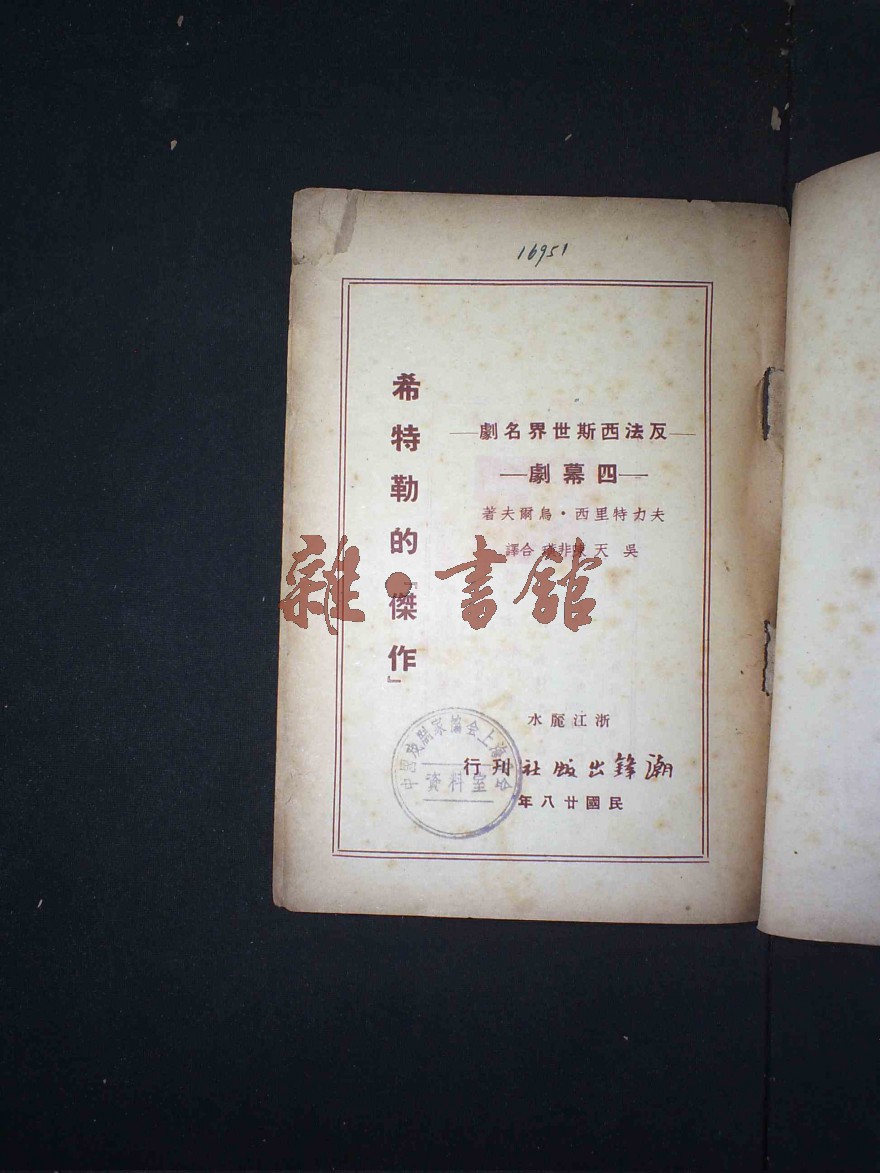 16951
反法西斯世界名劇
四幕劇
夫力特里西·烏爾夫著
吳天 陳非璜 合譯
希特勒的『傑作』
浙江麗水
潮鋒出版社刊行
民國廿八年
中國戲劇家協会上海分会
資料室
雜·書館